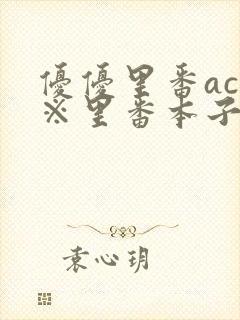 優優里番ac
※里番本子
袁心玥